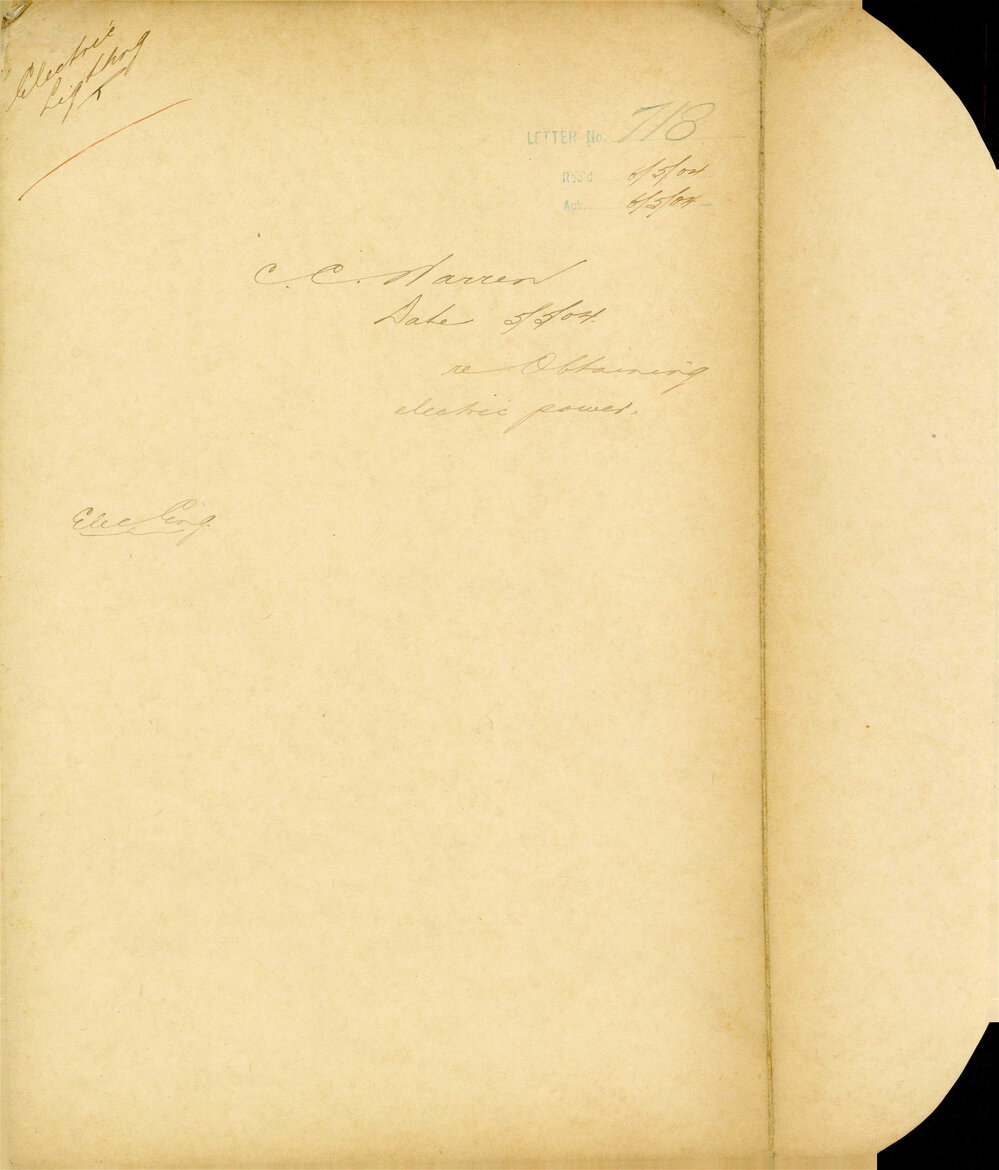 Electric
Lighting
LETTER No. 718
Rec'd 6/5/04
Ack. 6/5/04
C. C. Warren
Date 5/5/04.
re Obtaining
electric power.
Elec. Eng.